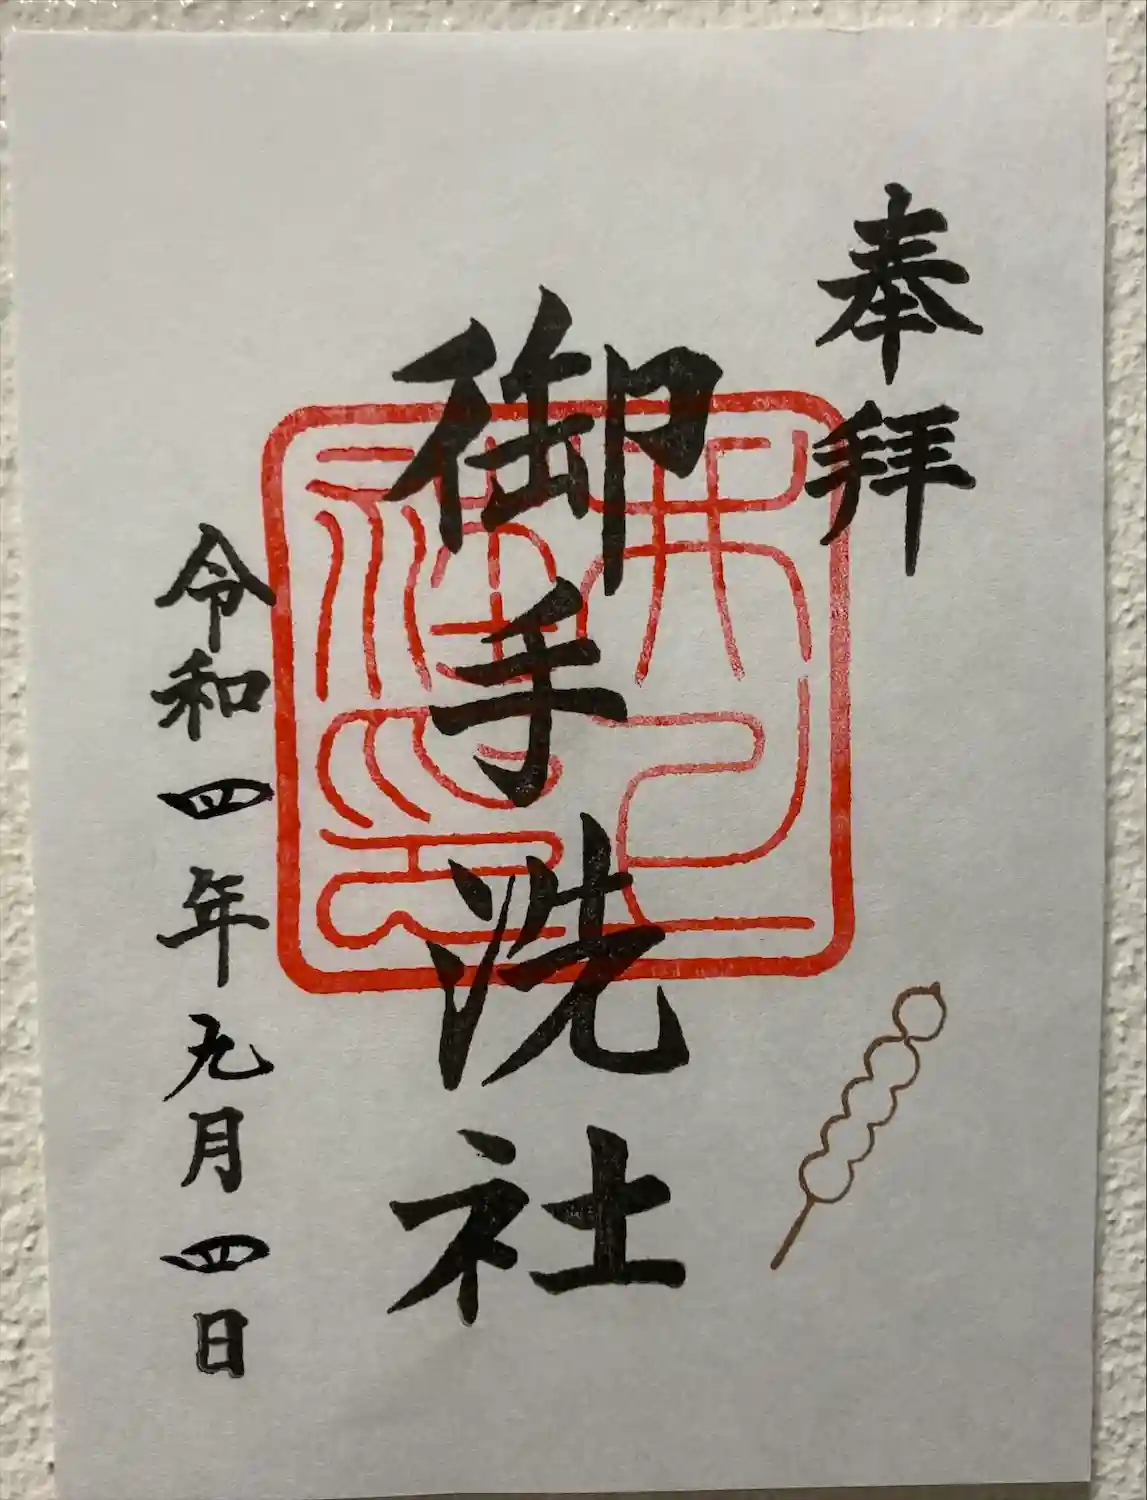 奉拝
御手洗社
令和四年九月四日